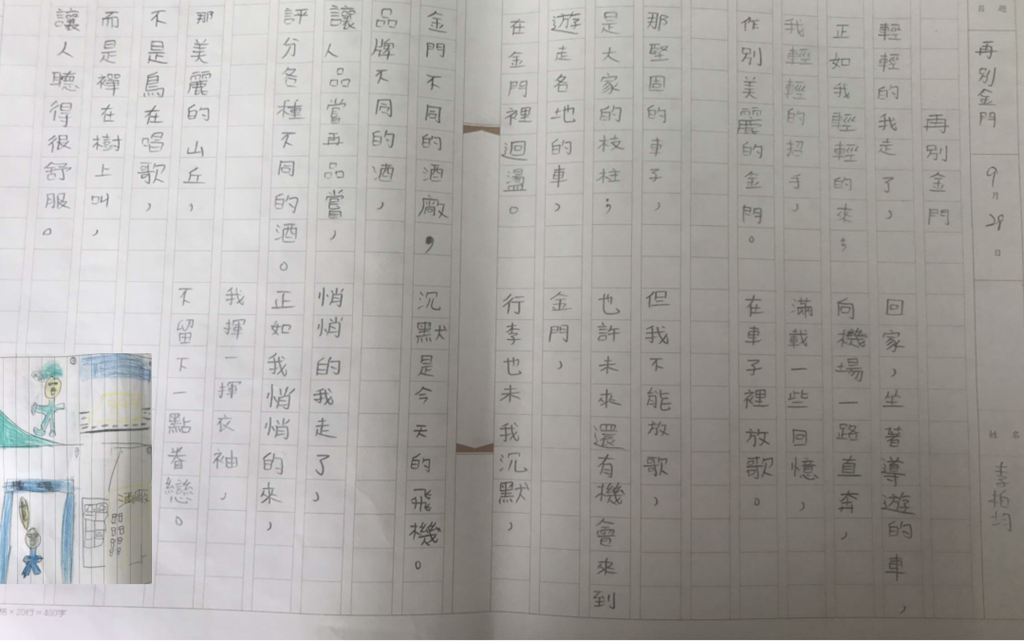 再別金門
9月29日
姓名
李柏均
再別金門
輕輕的我走了，
正如我輕輕的來；
我輕輕的招手，
作別美麗的金門。
那堅固的車子，
是大家的枝柱；
遊走名地的車，
在金門裡迴盪。
金門不同的酒廠，
品牌不同的酒，
讓人品嘗再品嘗，
評分各種不同的酒。
那美麗的山丘，
不是鳥在唱歌，
而是禪在樹上叫，
讓人聽得很舒服。
回家，坐著導遊的車，
向機場一路直奔，
滿載一些回憶，
在車子裡放歌。
但我不能放歌，
也許未來還有機會來到
金門，
行李也未我沉默，
沉默是今天的飛機。
悄悄的我走了，
正如我悄悄的來，
我揮一揮衣袖，
不留下一點眷戀。
×20行=400字